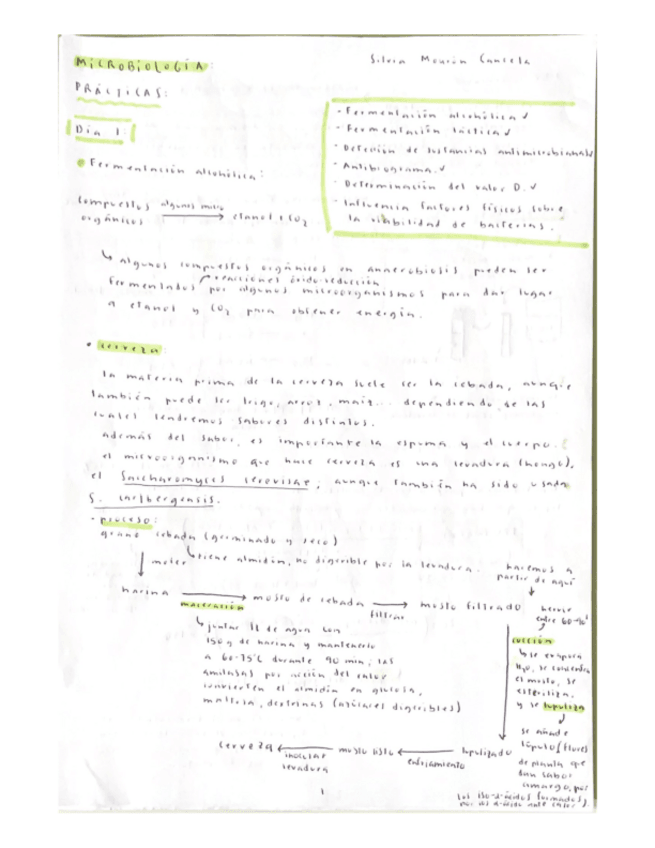 MICROBIOLOGÍA:
PRÁCTICAS:
Día 1:
- Fermentación alcohólica ✓
- Fermentación láctica ✓
- Detección de sustancias antimicrobianas ✓
- Antibiograma. ✓
- Determinación del valor D. ✓
- Influencia factores físicos sobre
la viabilidad de bacterias.
• Fermentación alcohólica:
compuestos orgánicos → etanol + CO2
↳ algunos compuestos orgánicos en anaerobiosis pueden ser
reacciones óxido-reducción
fermentados por algunos microorganismos para dar lugar
a etanol y CO2 para obtener energía.
• cerveza:
la materia prima de la cerveza suele ser la cebada, aunque
también puede ser trigo, arroz, maíz... dependiendo de las
cuales tendremos sabores distintos.
además del sabor, es importante la espuma y el cuerpo.
el microorganismo que hace cerveza es una levadura (hongo),
el Saccharomyces cerevisae, aunque también ha sido usada
S. carlbergensis.
- proceso:
grano cebada (germinado y seco)
↳ tiene almidón, no digerible por la levadura.
↓ moler
haremos a
partir de aquí
↓
harina → maceración → mosto de cebada → filtrar → mosto filtrado
hervir
entre 60-90'
↳ juntar 1L de agua con
150 g de harina y mantenerlo
a 60-75ºC durante 90 min; las
amilasas por acción del calor
convierten el almidón en glucosa,
maltosa, dextrinas (azúcares digeribles)
cocción
↳ se evapora
H2O, se concentra
el mosto, se
esteriliza,
y se lupuliza
↓
se añade
lúpulo (flores
de planta que
dan sabor
amargo, por
los iso-α-ácidos formados
por los α-ácido ante calor).
cerveza ← inocular levadura ← mosto listo ← enfriamiento ← lupulizado
1